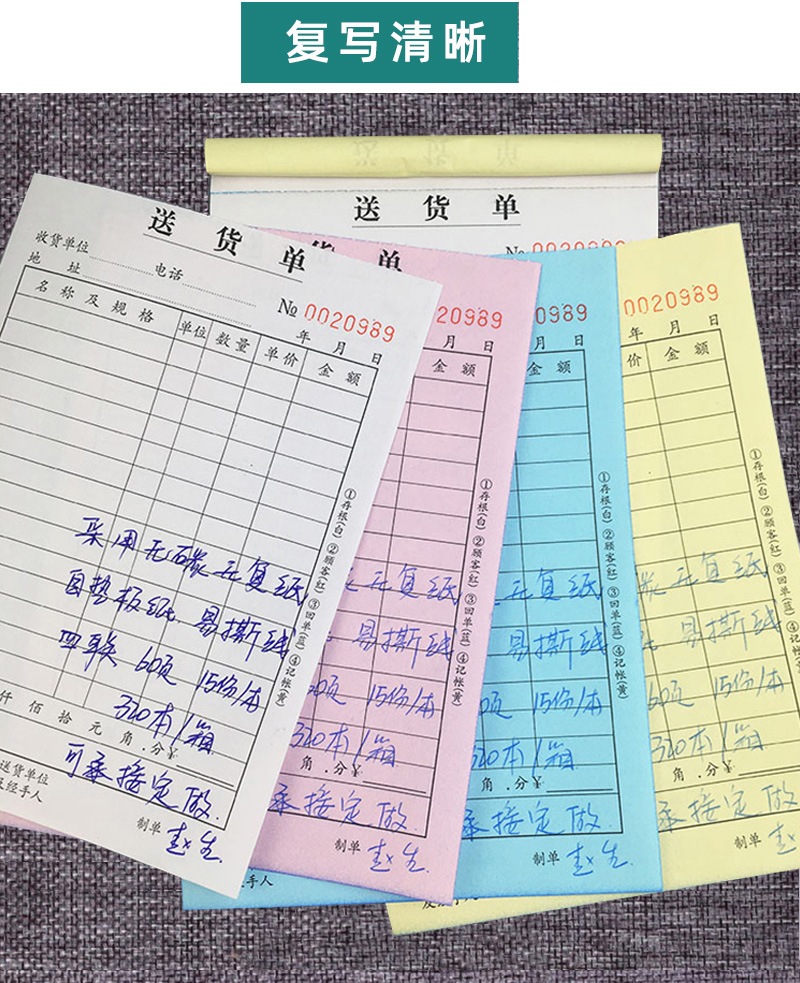 复写清晰
送货单
送货单
收货单位 电话
地 址
№ 0020989
年 月 日
名称及规格 单位 数量 单价 金额
采用无碳无复纸
自垫板纸 易撕线
四联 60页 15份/本
320本/箱
可承接定做.
仟佰拾元 角.分¥
送货单位
及经手人
制单 赵生
①存根(白)②顾客(红)③回单(蓝)④记帐(黄)
货单
20989
月 日
金额
无复纸
易撕线
60页 15份/本
320本/箱
角.分¥
承接定做.
制单 赵生
①存根(白)②顾客(红)③回单(蓝)④记帐(黄)
№ 0020989
0989
月 日
金额
无复纸
易撕线
15份/本
320本/箱
角.分¥
承接定做.
经手人
制单 赵生
①存根(白)②顾客(红)③回单(蓝)④记帐(黄)
0020989
年 月 日
价 金额
无复纸
易撕线
60页 15份/本
320本/箱
角.分¥
承接定做
制单 赵生
①存根(白)②顾客(红)③回单(蓝)④记帐(黄)